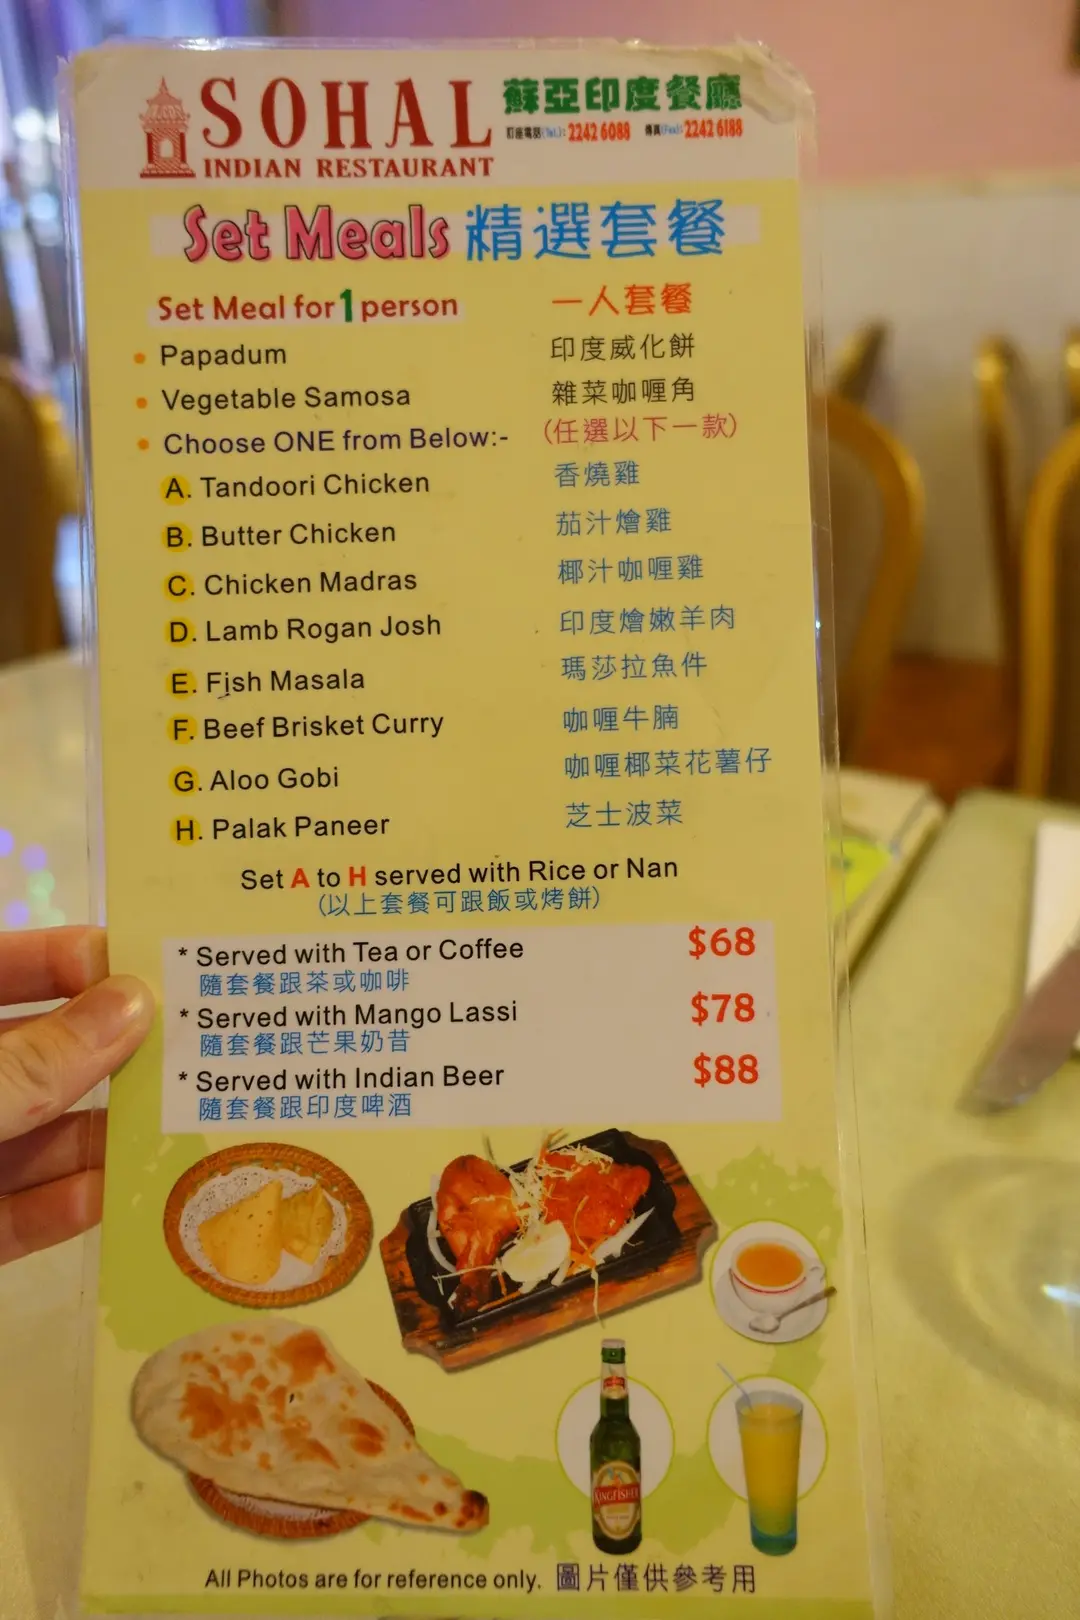 SOHAL
INDIAN RESTAURANT
蘇亞印度餐廳
訂座電話(Tel.): 2242 6088 傳真(Fax): 2242 6188
Set Meals 精選套餐
Set Meal for 1 person 一人套餐
• Papadum 印度威化餅
• Vegetable Samosa 雜菜咖喱角
• Choose ONE from Below:- (任選以下一款)
A. Tandoori Chicken 香燒雞
B. Butter Chicken 茄汁燴雞
C. Chicken Madras 椰汁咖喱雞
D. Lamb Rogan Josh 印度燴嫩羊肉
E. Fish Masala 瑪莎拉魚件
F. Beef Brisket Curry 咖喱牛腩
G. Aloo Gobi 咖喱椰菜花薯仔
H. Palak Paneer 芝士波菜
Set A to H served with Rice or Nan
(以上套餐可跟飯或烤餅)
* Served with Tea or Coffee $68
隨套餐跟茶或咖啡
* Served with Mango Lassi $78
隨套餐跟芒果奶昔
* Served with Indian Beer $88
隨套餐跟印度啤酒
KINGFISHER
All Photos are for reference only. 圖片僅供參考用